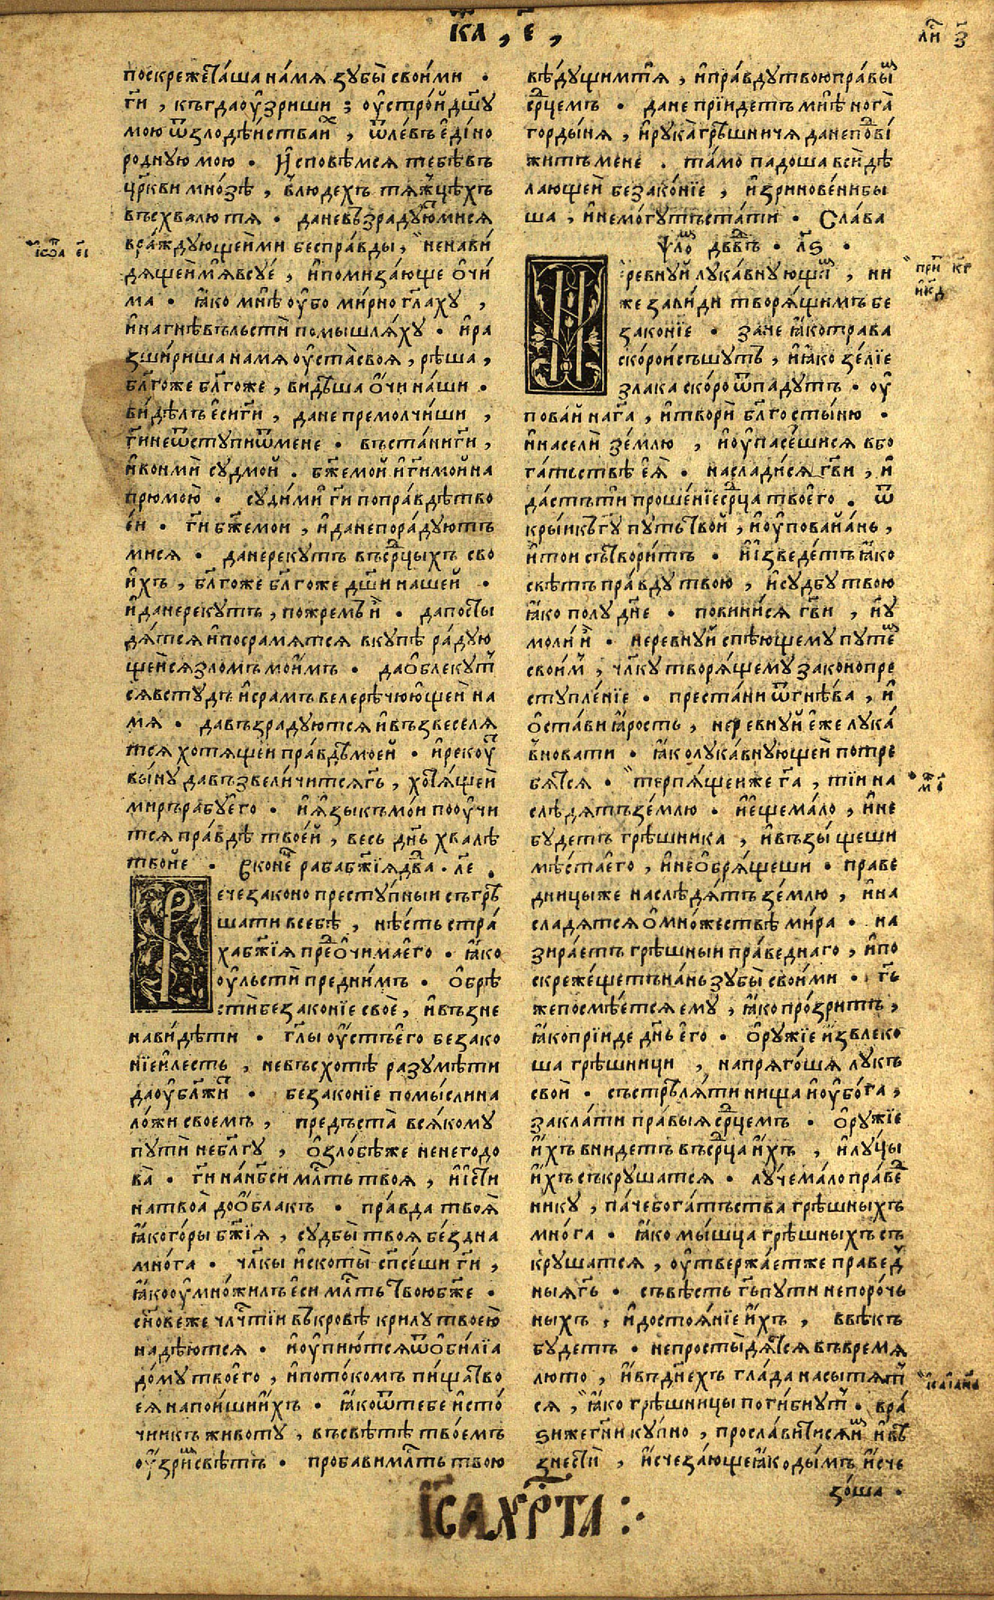 к҃а , є҃ ,
ли҃ з҃
поскреже́таша на́мѧ зубы̀ свои́ми •
ги҃ , къгда оу҆́зриши ; оу҆строй дш҃у
мою ѿ злодѣ́йства и҆х , ѿ левъ є҆ди́но
родную мою • И҆сповѣ́мсѧ тебѣ̀ въ
цр҃кви мно́зѣ , в людехъ тѧ́жцѣхъ
въсхвалю тѧ • да не въ́зраду́ютмисѧ
вра́ждующеи ми бесправды , ненави́
дѧщеи мѧ̀ всуе , и҆ помиза́юще ѻ҆чи́
ма • ꙗ҆́ко мнѣ̀ оу҆́бо ми́рно гл҃аху ,
и҆ на гнѣ́въ льстѝ помышлѧ́ху • и҆ ра
зши́риша на мѧ оу҆ста̀ своѧ , рѣ́ша ,
бл҃гоже бл҃гоже , ви́дѣша ѻ҆́чи на́ши •
ви́дѣлъ є҆си ги҃ , да не премолчи́ши ,
ги҃ не ѿступи ѿ мене • въста́ни ги҃ ,
и҆ вонмѝ судмой • бж҃е мой и҆ ги҃ мой на
прю мою̀ • суди́ ми ги҃ по пра́вдѣ тво
є́и • ги҃ бж҃е мои , и҆ да не пора́дуютъ
мисѧ • да не рекутъ въ ср҃цыхъ сво
и҆́хъ , бл҃гоже бл҃гоже дш҃и нашей •
и҆ да не рекутъ , пожрем и҆̀ • да посты
дѧ́тсѧ и҆ посрамѧтсѧ вкупѣ ра́дую
щеисѧ зломъ мои҆мъ • да ѻ҆блекут
сѧ в студъ и҆ срамъ велерѣ́чющеи на
мѧ • да въ́зрадуютсѧ и҆ въ́звеселѧ́
тсѧ хотѧщеи пра́вдѣ моей • и҆ рекоу҆т
вы́ну да възвели́читсѧ гь҃ , хотѧ́щей
миръ рабу є҆го • и҆ ꙗ҆зыкъ мой пооу҆чи
тсѧ пра́вдѣ твое́й , весь дн҃ь хвалѣ̀
твое́й • В коне́ц раба бж҃їѧ дв҃да • ле҃ •
Рече законопресту́пныи съгрѣ
шати в себѣ , нѣ́сть стра́
ха бж҃їѧ пред ѻ҆чима є҆го • ꙗ҆́ко
оу҆́льсти преднимъ • ѻ҆брѣ
сти беззаконїе своѐ , и҆ въ́зне
нави́дѣти • гл҃ы оу҆стъ є҆го безако
нїе и҆ лесть , невъсхотѣ̀ разумѣти
да оу҆блжи́т • безаконїе помысли на
ло́жи своемъ , предъста̀ всѧкому
пути небл҃гу , ѻ҆ злобѣ же не негодо
ва̀ • ги҃ на нб҃си млт҃ь твоѧ , и҆ и҆сти
на твоѧ̀ до ѻ҆́блакъ • пра́вда твоѧ̀
ꙗ҆́ко го́ры бж҃їѧ , судбы̀ твоѧ бе́здна
мно́га • чл҃кы и҆ скоты̀ сп҃се́ши ги҃ ,
ꙗ҆́ко оу҆мно́жилъ є҆си млт҃ь твою бж҃е •
сн҃ове же члч҃стїи в кро́вѣ крилу твоею̀
надѣ́ютсѧ • и҆ оу҆пию́тсѧ ѿ ѻ҆би́лїа
до́му твоего , и҆ пото́комъ пища тво
еѧ напои́ши и҆х • ꙗ҆́ко ѿ тебе и҆сто́
чникъ животу , въ свѣтѣ̀ твоемъ
оу҆́зрим свѣтъ • проба́ви млт҃ь твою
вѣ́дущимтѧ , и҆ пра́вду твою пра́вым
ср҃цемъ • да не прїи́детъ мнѣ̀ нога̀
горды́нѧ , и҆ рука̀ грѣ́шничѧ да не подви́
житъ мене • та́мо падоша вси дѣ́
лающеи безако́нїе , и҆зринове́ни бы
ша , и҆ не мо́гутъ ста́ти • Сла́ва
Ѱло́м дв҃въ • лѕ҃ •
Не ревнуй лука́внующим , ни
же зави́ди творѧ́щимъ бе
зако́нїе • зане ꙗ҆́ко трава
скоро и҆сшутъ , и҆ ꙗ҆́ко зе́лїе
злака ско́ро ѿпадутъ • оу҆
пова́й на га҃ , и҆ творѝ бл҃госты́ню •
и҆ населѝ зе́млю , и҆ оу҆пасе́шисѧ в бо
га́тьствѣ є҆ѧ̀ • насла́дисѧ гв҃и , и҆
да́стъти проше́нїе ср҃ца твоего • ѿ
кры́и къ гу҃ путь твой , и҆ оу҆повай на́нь ,
и҆ той сътвори́тъ • и҆ и҆зведе́тъ ꙗ҆́ко
свѣтъ пра́вду твою , и҆ судбу твою
ꙗ҆́ко полу́дне • пови́ни́сѧ гв҃и , и҆ у
моли и҆̀ • не ревнуй спѣющему путем
свои́м , чл҃ку творѧ́щему законопре
ступле́нїе • преста́ни ѿ гнѣ́ва , и҆
ѻ҆ста́ви ꙗ҆́рость , не ревнуй є҆́же лука́
вновати • ꙗ҆́ко лука́внующей потре
бѧ́тсѧ • терпѧ́щеи же га҃ , тїи на
слѣдѧтъ зе́млю • и҆ є҆ще ма́ло , и҆ не
будетъ грѣ́шника , и҆ възы́щеши
мѣ́ста є҆го , и҆ не ѻ҆брѧ́щеши • праве
дницы же наслѣ́дѧтъ зе́млю , и҆ на
сладѧтсѧ ѻ҆ мно́жествѣ ми́ра • на
зира́етъ грѣ́шныи пра́веднаго , и҆ по
скреже́щетъ на́нь зубы̀ своими • гь҃
же посмѣе́тсѧ ему , ꙗ҆́ко про́зритъ ,
ꙗ҆́ко прїи́де дн҃ь є҆го • ѻ҆ру́жїе и҆звлеко
ша грѣ́шници , напрѧго́шѧ лу́къ
свой • състрѣлѧ́ти нища и҆ оу҆бо́га ,
закла́ти пра́выѧ ср҃цемъ • ѻ҆ру́жїе
и҆́хъ вни́детъ въ ср҃ца и҆́хъ , и҆ лу́цы
и҆́хъ съкруша́тсѧ • лу́че ма́ло пра́вед
нику , паче бога́тъства грѣ́шныхъ
мно́га • ꙗ҆́ко мы́шца грѣ́шныхъ съ
круша́тсѧ , оу҆твержа́ет же правед
ныѧ гь҃ • съвѣсть гь҃ пути непоро́чь
ныхъ , и҆ достоѧ́нїе и҆́хъ , ввѣкъ
будетъ • не простыдѧ́тсѧ въ времѧ
лю́то , и҆ въ дне́хъ гла́да насытѧт
сѧ , ꙗ҆́ко грѣ́шницы поги́бнут • вра
ѕи же гн҃и купно , просла́витисѧ и҆м и҆ въ
знести , и҆счеза́юще ꙗ҆́ко ды́мъ и҆сче
зо́ша •
І҆с҃а хр҃та :·